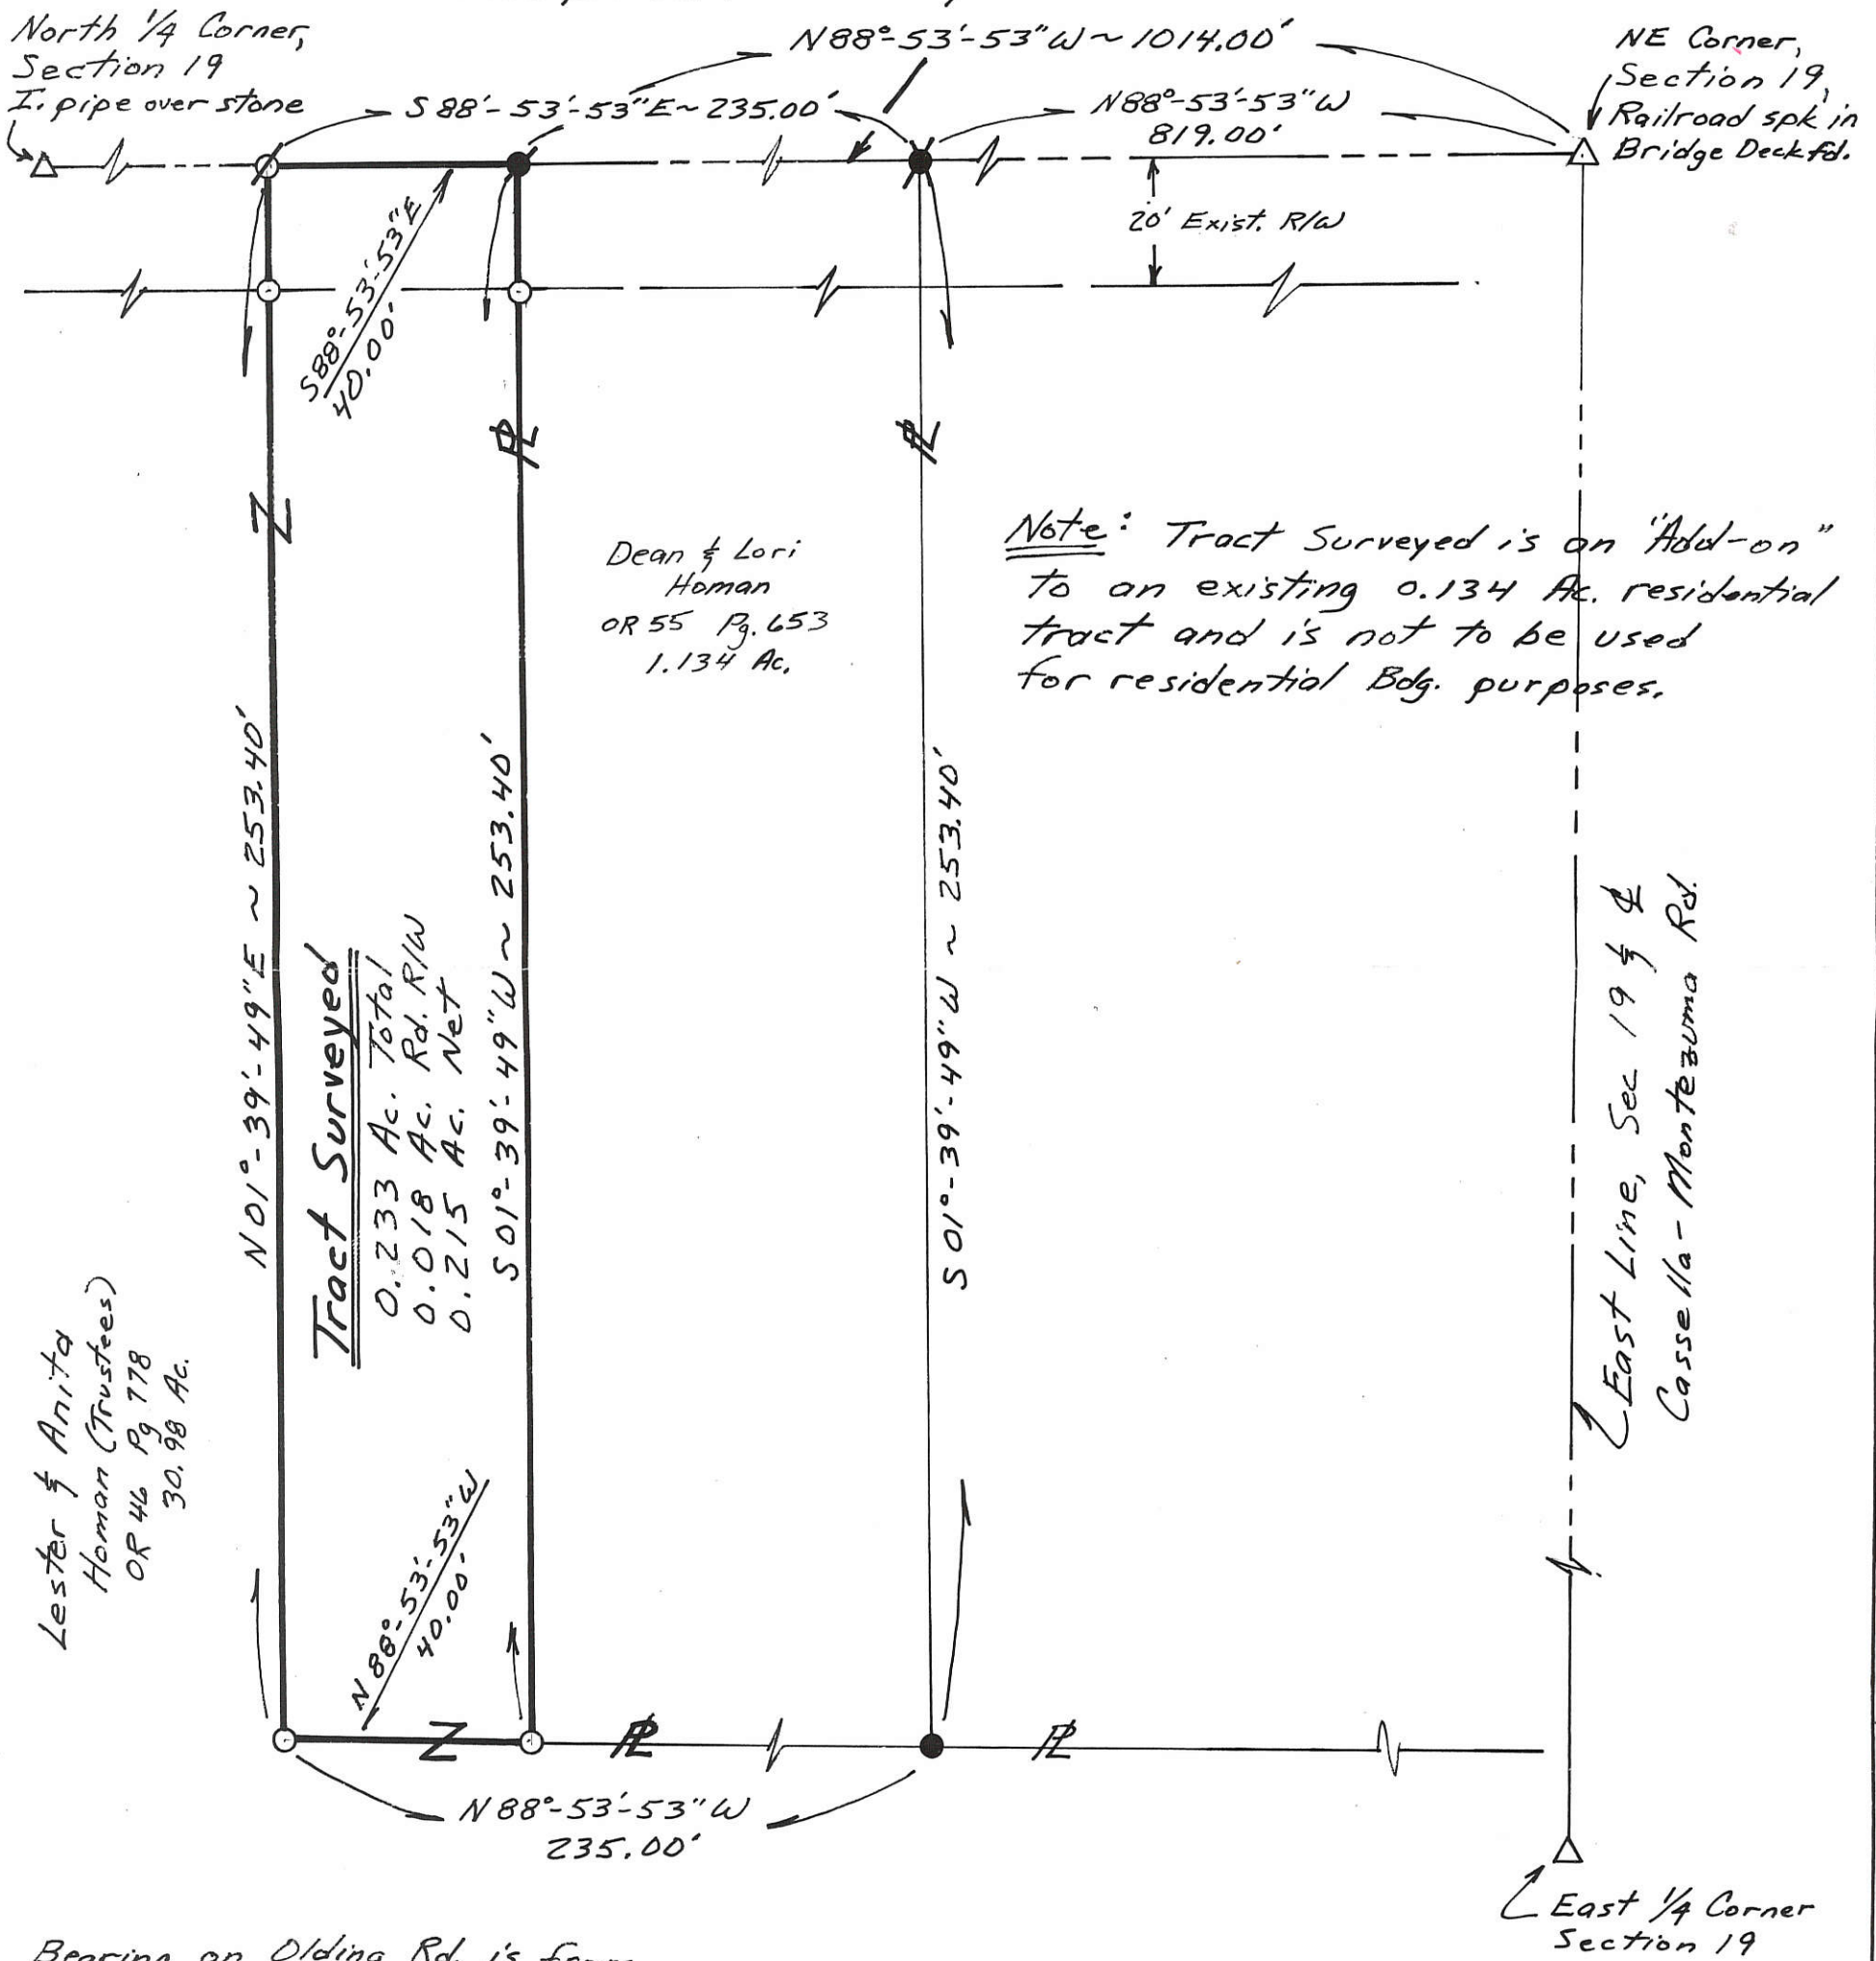 North 1/4 Corner,
Section 19
I. pipe over stone
N88°-53'-53"W ~ 1014.00'
NE Corner,
Section 19,
Railroad spk in
Bridge Deck fd.
S 88'-53'-53"E ~ 235.00'
N88°-53'-53"W
819.00'
20' Exist. R/W
S88°-53'-53"E
40.00'
PL
PL
Z
Dean & Lori
Homan
OR 55 Pg. 653
1.134 Ac.
Note: Tract Surveyed is an "Add-on"
to an existing 0.134 Ac. residential
tract and is not to be used
for residential Bdg. purposes.
N 01°-39'-49"E ~ 253.40'
Tract Surveyed
0.233 Ac. Total
0.018 Ac. Rd. R/W
0.215 Ac. Net
S 01°-39'-49"W ~ 253.40'
S 01°-39'-49"W ~ 253.40'
East Line, Sec 19 & CL
Cassella-Montezuma Rd.
Lester & Anita
Homan (Trustees)
OR 46 Pg 778
30.98 Ac.
N 88°-53'-53"W
40.00'
Z
PL
PL
N 88°-53'-53"W
235.00'
East 1/4 Corner
Section 19
Bearing on Olding Rd. is from